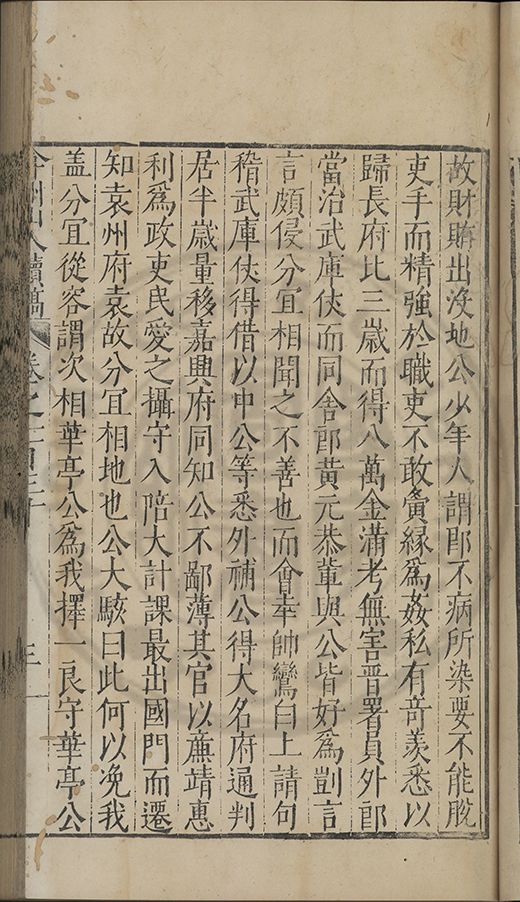 故財賄出沒地公少年人謂郎不病所染要不能脫
吏手而精強於職吏不敢夤緣爲姦私有竒羨悉以
歸長府比三歲而得八萬金滿考無害晋署員外郎
當治武庫使而同舍郎黃元恭軰與公皆好爲剴言
言頗侵分宜相聞之不善也而會幸帥鸞白上請句
稽武庫使得借以中公等悉外補公得大名府通判
居半歲量移嘉興府同知公不鄙薄其官以亷靖惠
利爲政吏民愛之攝守入陪大計課最出國門而遷
知袁州府袁故分宜相地也公大駭曰此何以浼我
盖分宜從容謂次相華亭公爲我擇一良守華亭公
山人續稿 卷之一百三十 三